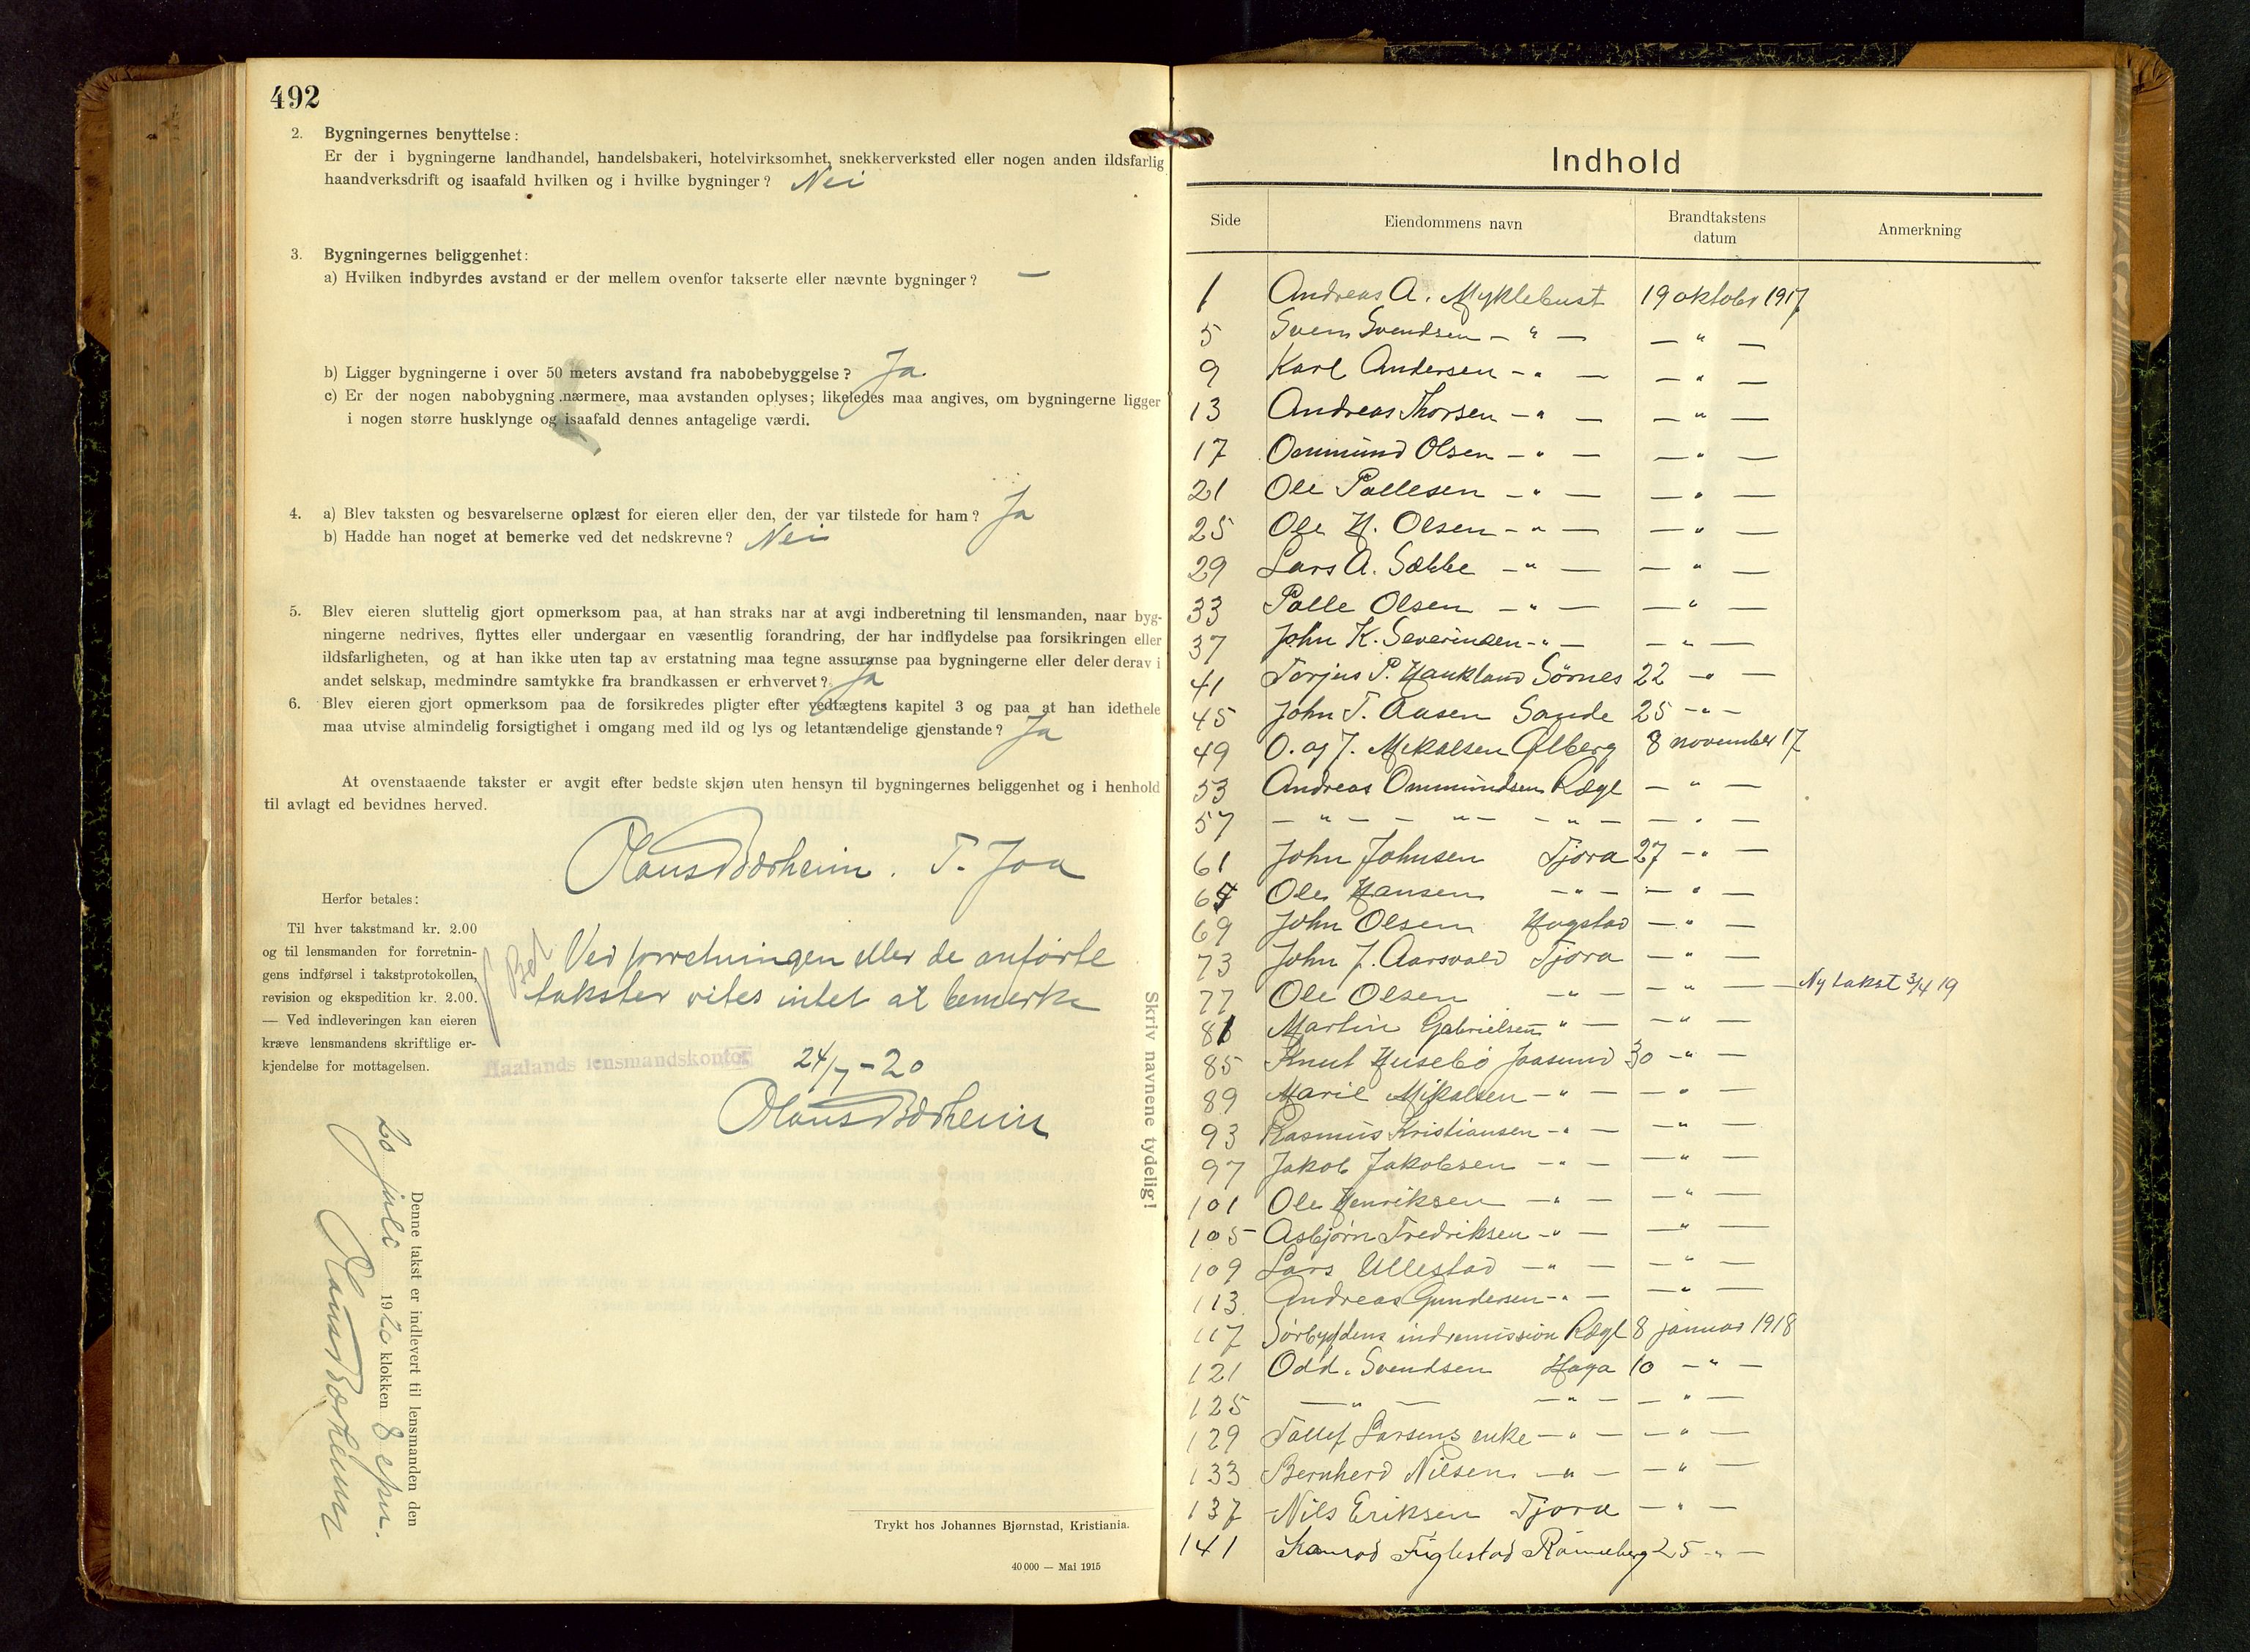 492
2. Bygningernes benyttelse:
Er der i bygningerne landhandel, handelsbakeri, hotelvirksomhet, snekkerverksted eller nogen anden ildsfarlig
haandverksdrift og isaafald hvilken og i hvilke bygninger? Nei
3. Bygningernes beliggenhet:
a) Hvilken indbyrdes avstand er der mellem ovenfor takserte eller nævnte bygninger? —
b) Ligger bygningerne i over 50 meters avstand fra nabobebyggelse? Ja
c) Er der nogen nabobygning nærmere, maa avstanden oplyses; likeledes maa angives, om bygningerne ligger
i nogen større husklynge og isaafald dennes antagelige værdi.
4. a) Blev taksten og besvarelserne oplæst for eieren eller den, der var tilstede for ham? Ja
b) Hadde han noget at bemerke ved det nedskrevne? Nei
5. Blev eieren sluttelig gjort opmerksom paa, at han straks har at avgi indberetning til lensmanden, naar byg-
ningerne nedrives, flyttes eller undergaar en væsentlig forandring, der har indflydelse paa forsikringen eller
ildsfarligheten, og at han ikke uten tap av erstatning maa tegne assuranse paa bygningerne eller deler derav i
andet selskap, medmindre samtykke fra brandkassen er erhvervet? Ja
6. Blev eieren gjort opmerksom paa de forsikredes pligter efter vedtægtens kapitel 3 og paa at han idethele
maa utvise almindelig forsigtighet i omgang med ild og lys og letantændelige gjenstande? Ja
At ovenstaaende takster er avgit efter bedste skjøn uten hensyn til bygningernes beliggenhet og i henhold
til avlagt ed bevidnes herved.
Olaus Bærheim. T. Joa
Herfor betales:
Til hver takstmand kr. 2.00
og til lensmanden for forretnin-
gens indførsel i takstprotokollen,
revision og ekspedition kr. 2.00.
— Ved indleveringen kan eieren
kræve lensmandens skriftlige er-
kjendelse for mottagelsen.
Bet
Ved forretningen eller de anførte
takster vites intet at bemerke
Haalands lensmandskontor
24/7-20
Olaus Bærheim
Skriv navnene tydelig!
Denne takst er indlevert til lensmanden den
20 juli 1920 klokken 8 epm.
Olaus Bærheim
Trykt hos Johannes Bjørnstad, Kristiania.
40 000 — Mai 1915
Indhold
Side Eiendommens navn Brandtakstens datum Anmerkning
1 Andreas A. Myklebust 19 oktober 1917
5 Sven Svendsen — " — — " —
9 Karl Andersen — " — — " —
13 Andreas Thorsen — " — — " —
17 Ommund Olsen — " — — " —
21 Ole Pallesen — " — — " —
25 Ole H. Olsen — " — — " —
29 Lars A. Sække — " — — " —
33 Palle Olsen — " — — " —
37 John K. Severinsen — " — — " —
41 Torjus P. Haukland Sörnes 22 — " —
45 John T. Aasen Sande 25 — " —
49 O. og J. Mikalsen Ølberg 8 november 17
53 Andreas Ommundsen Rægl — " —
57 — " — — " — — " — — " —
61 John Johnsen Tjora 27 — " —
65 Ole Hansen — " — — " —
69 John Olsen Hogstad — " —
73 John J. Aarsvold Tjora — " —
77 Ole Olsen — " — — " — Ny takst 3/4 19
81 Martin Gabrielsen " — — " —
85 Knut Husebö Jaasund 30 — " —
89 Marie Mikalsen — " — — " —
93 Rasmus Kristiansen — " — — " —
97 Jakob Jakobsen — " — — " —
101 Ole Henriksen — " — — " —
105 Asbjørn Fredriksen — " — — " —
109 Lars Ullestad — " — — " —
113 Andreas Gundersen — " — — " —
117 Sörbygdens indremission Rægl 8 januar 1918
121 Odd. Svendsen Haga 10 — " —
125 — " — — " — — " —
129 Tollef Larsens enke — " — — " —
133 Bernherd Nilsen — " — — " —
137 Nils Eriksen Tjora — " —
141 Konrad Figlestad Rönneberg 25 — " —